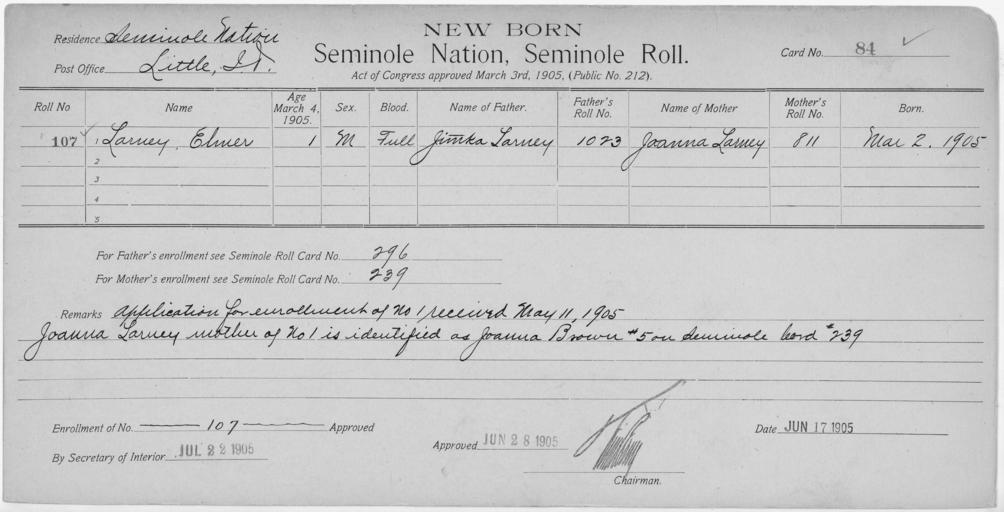 NEW BORN
Seminole Nation, Seminole Roll.
Act of Congress approved March 3rd, 1905, (Public No. 212).
Residence Seminole Nation
Post Office Little, I.T.
Card No. 84
Roll No Name Age March 4, 1905. Sex. Blood. Name of Father. Father's Roll No. Name of Mother Mother's Roll No. Born.
107 1 Larney, Elmer 1 M Full Jimka Larney 1023 Joanna Larney 811 Mar 2. 1905
2
3
4
5
For Father's enrollment see Seminole Roll Card No. 296
For Mother's enrollment see Seminole Roll Card No. 239
Remarks Application for enrollment of No 1 received May 11, 1905
Joanna Larney mother of No 1 is identified as Joanna Brown #5 on Seminole Card #239
Enrollment of No. 107 Approved
By Secretary of Interior. JUL 22 1905
Approved JUN 28 1905
Chairman.
Date JUN 17 1905